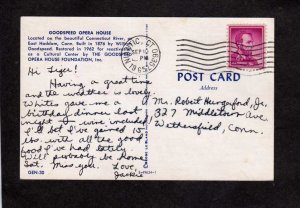 GOODSPEED OPERA HOUSE
Located on the beautiful Connecticut River,
East Haddam, Conn. Built in 1876 by William
Goodspeed. Restored in 1962 for reactivation
as a Cultural Center by THE GOODSPEED
OPERA HOUSE FOUNDATION, Inc.
CONN.
SEP 10
PM
Hi Tiger!
Having a great time
and the weather is lovely.
Whites gave me a
birthday dinner last
night & wine included
I'll bet I've gained 15
lbs. with all the good
food I've had lately
Will probably be home
Sat. Miss you.
Love,
Jackie
GEN-30
POST CARD
Address
Mr. Robert Hungerford, Jr.
327 Middletown Ave
Wethersfield, Conn.